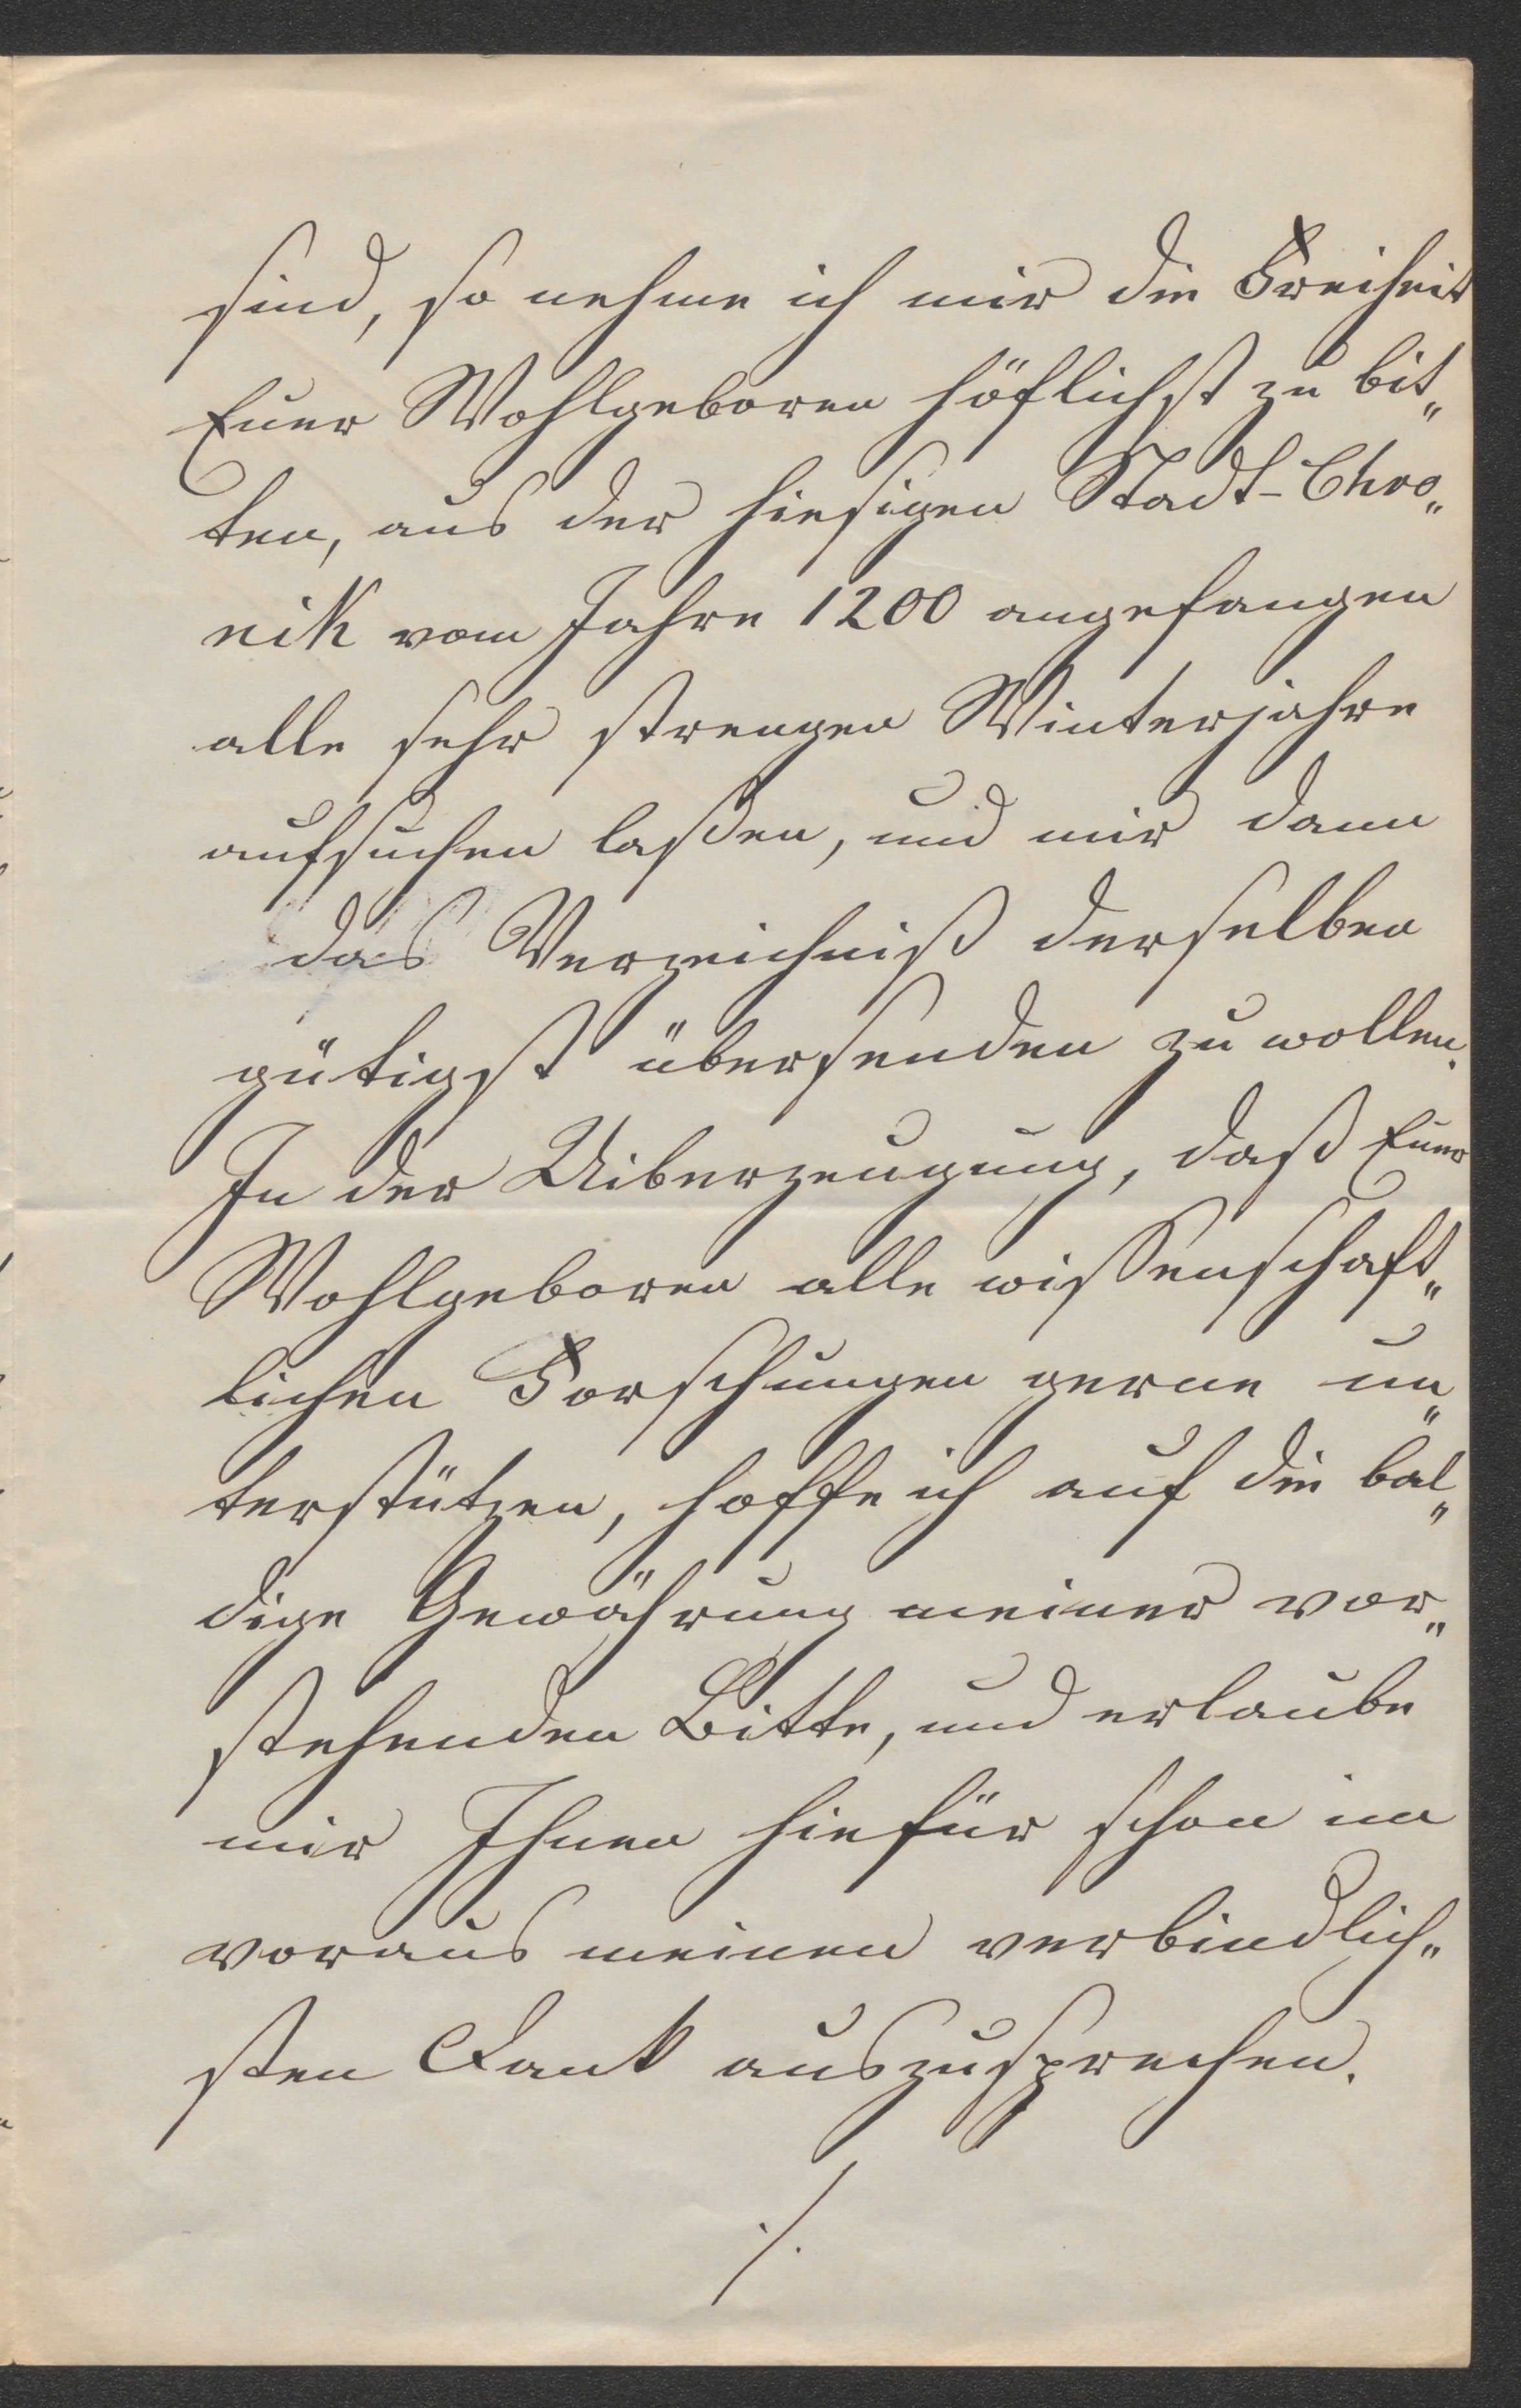 sind, so nehme ich mir die Freiheit
Euer Wohlgeboren höflichst zu bit„
ten, aus der hiesigen Stadt-Chro„
nik vom Jahre 1200 angefangen
alle sehr strengen Winterjahre
aufsuchen laßen, und mir dann
das Verzeichniß derselben
gütigst übersenden zu wollen.
In der Uiberzeugung, daß Euer
Wohlgeboren alle wißenschaft„
lichen Forschungen gerne un„
terstützen, hoffe ich auf die bal„
dige Gewährung meiner vor„
stehenden Bitte, und erlaube
mir Ihnen hiefür schon im
voraus meinen verbindlich„
sten Dank auszusprechen.
./.